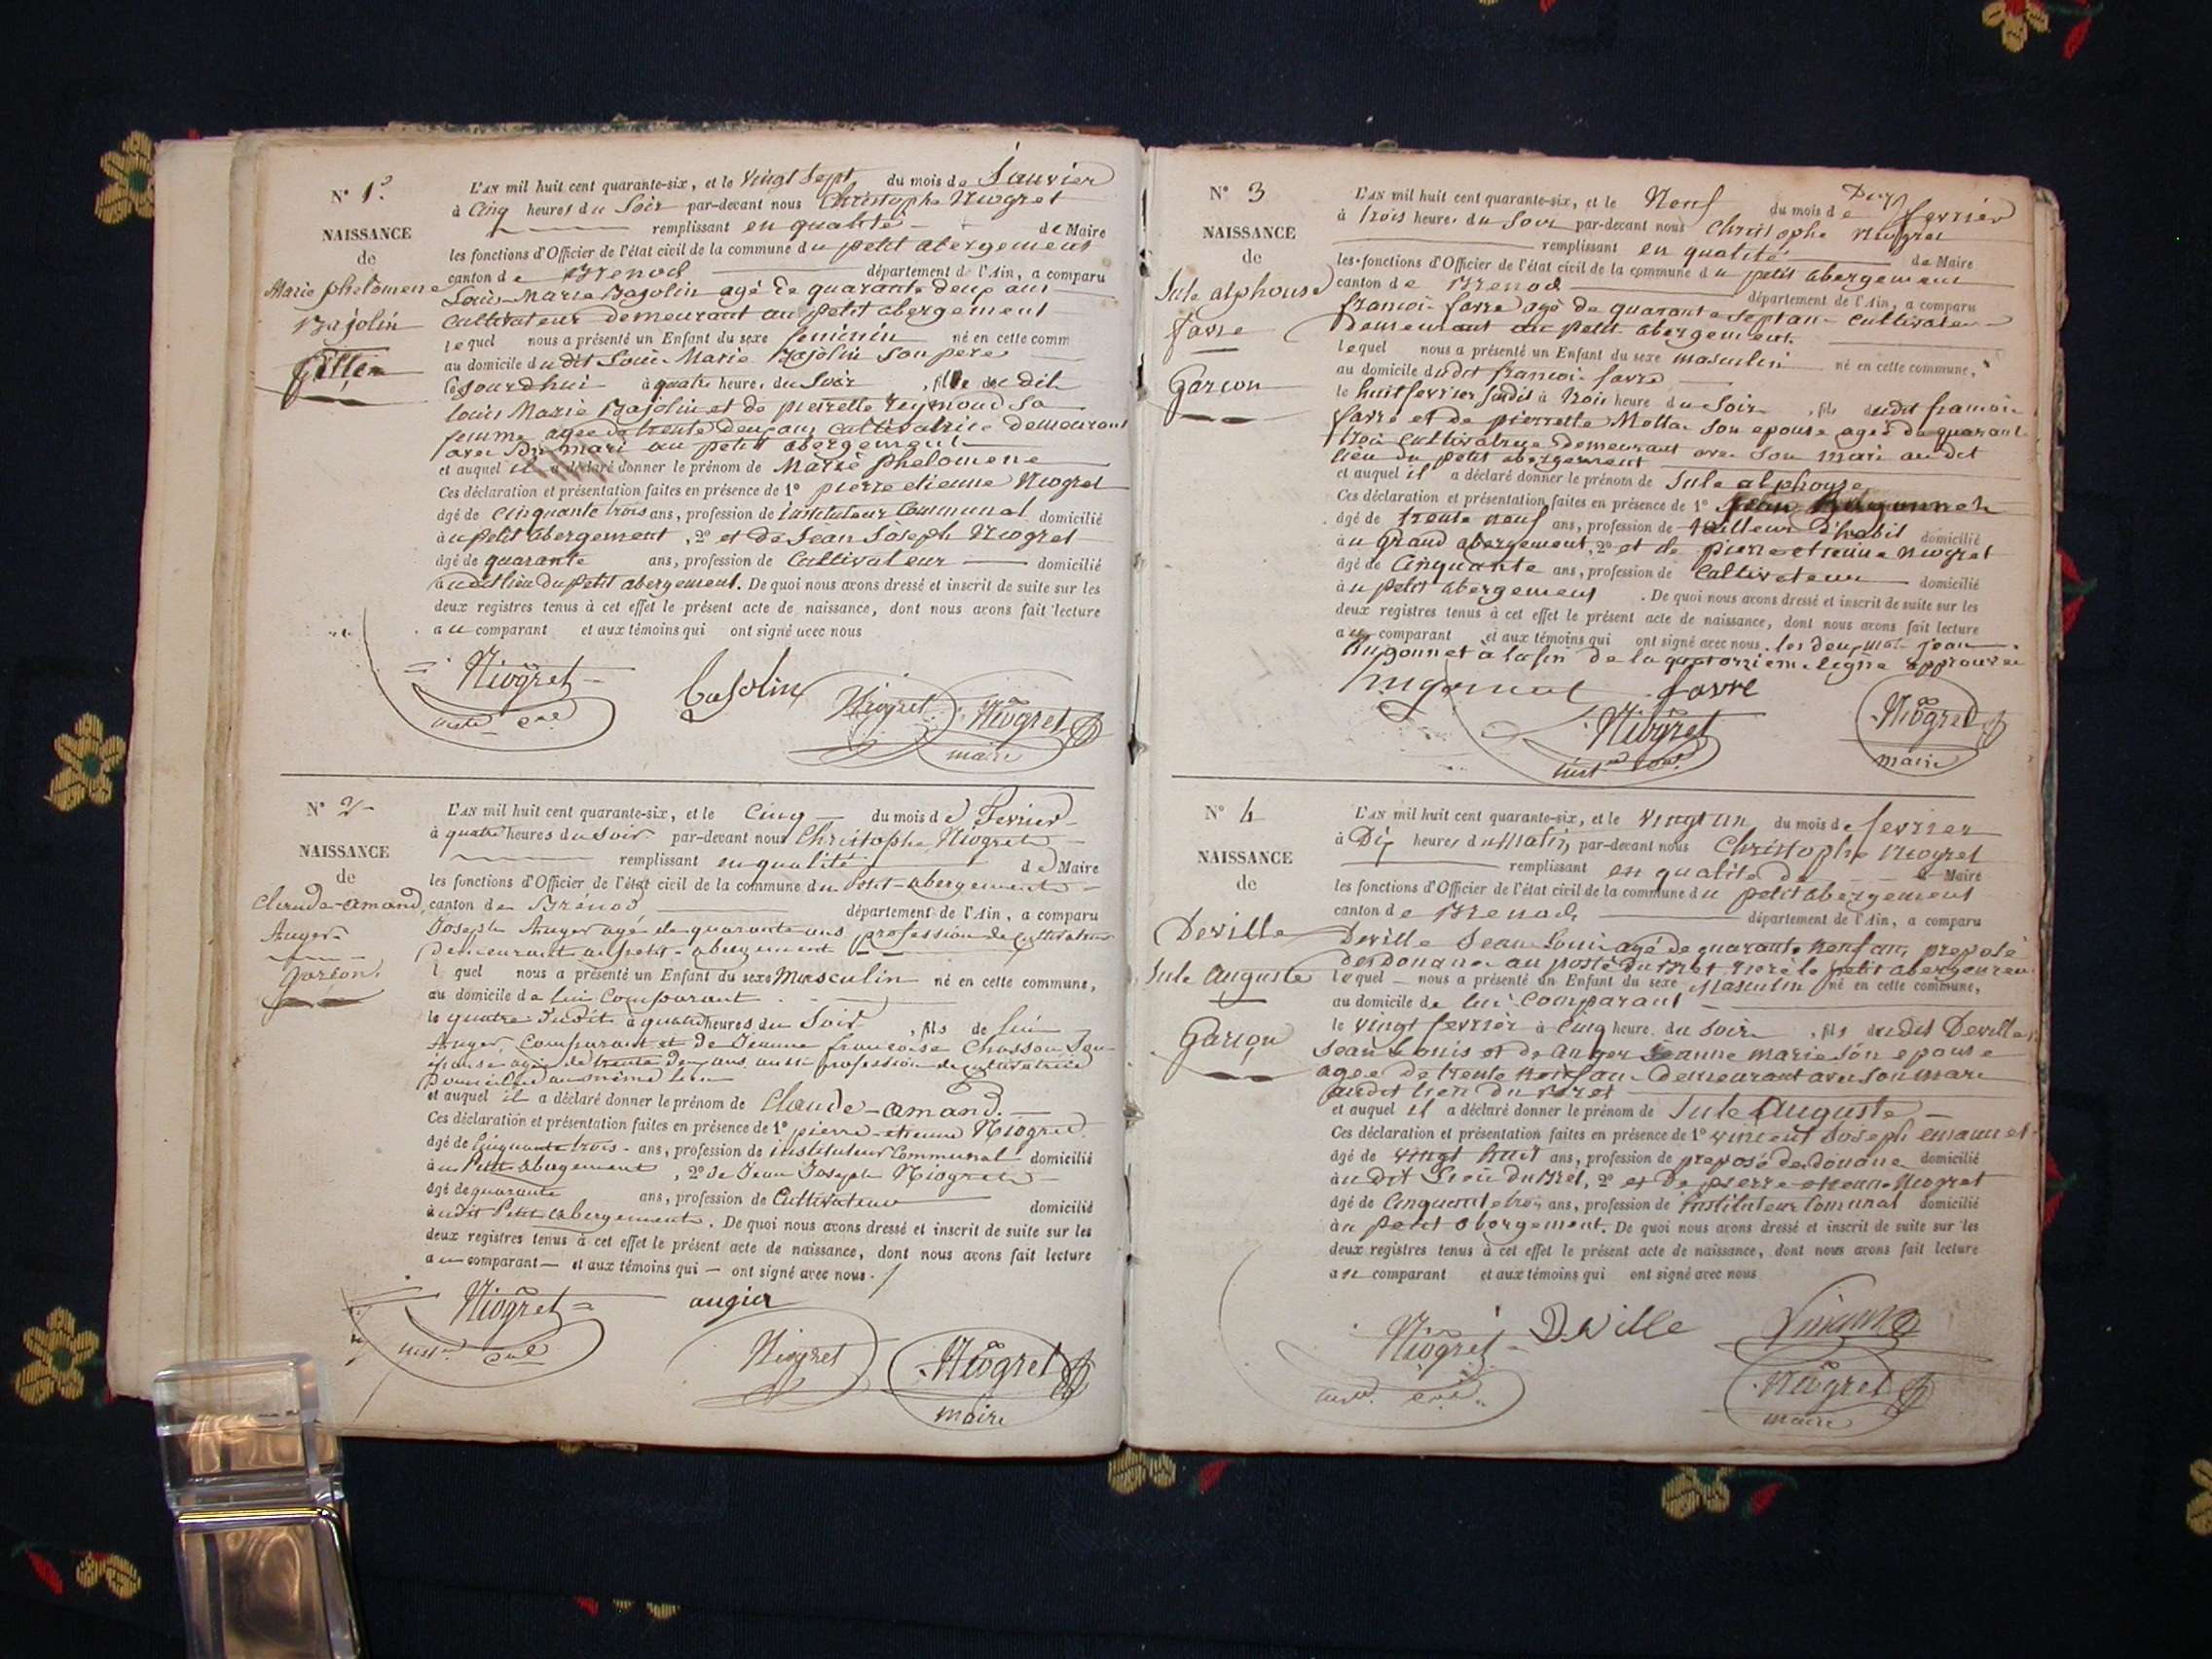 N° 1er
NAISSANCE
de
Marie phelomene
Bajolin
fille
L'AN mil huit cent quarante-six, et le vingt sept du mois de Janvier
à Cinq heures du Soir par-devant nous Christophe Niogret
remplissant en qualité de Maire
les fonctions d'Officier de l'état civil de la commune du petit abergement
canton de Brenod département de l'Ain, a comparu
Louis Marie Bajolin agé de quarante deux ans
Cultivateur demeurant au petit abergement
lequel nous a présenté un Enfant du sexe feminin né en cette comm
au domicile dudit Louis Marie Bajolin son pere
le jourdhui à quatre heures du Soir , fille du dit
louis Marie Bajolin et de pierrette Reymond sa
femme agée de trente deux ans Cultivatrice demeurant
avec son mari au petit abergement
et auquel il a déclaré donner le prénom de Marie phelomene
Ces déclaration et présentation faites en présence de 1° pierre etienne Niogret
âgé de cinquante trois ans, profession de instituteur Communal domicilié
au petit abergement , 2° et de Jean Joseph Niogret
âgé de quarante ans, profession de Cultivateur domicilié
audit lieu du petit abergement. De quoi nous avons dressé et inscrit de suite sur les
deux registres tenus à cet effet le présent acte de naissance, dont nous avons fait lecture
au comparant et aux témoins qui ont signé avec nous
Niogret Bajolin Niogret Niogret
maire
N° 2
NAISSANCE
de
Claude-amand
Auger
garçon
L'AN mil huit cent quarante-six, et le Cinq du mois de Fevrier
à quatre heures du soir par-devant nous Christophe Niogret
remplissant en qualité de Maire
les fonctions d'Officier de l'état civil de la commune du Petit-abergement
canton de Brénod département de l'Ain, a comparu
Joseph Auger agé de quarante ans profession de cultivateur
demeurant au petit-abergement
l quel nous a présenté un Enfant du sexe Masculin né en cette commune,
au domicile de lui Comparant
le quatre dudit à quatre heures du Soir , fils de lui
Auger Comparant et de Jeanne francoise Chasson son
épouse agée de trente deux ans aussi profession de cultivatrice
domiciliée au même lieu
et auquel il a déclaré donner le prénom de Claude-amand.
Ces déclaration et présentation faites en présence de 1° pierre-etienne Niogret
âgé de Cinquante trois - ans, profession de instituteur Communal domicilié
au Petit abergement , 2° de Jean Joseph Niogret
âgé de quarante ans, profession de Cultivateur domicilié
audit Petit abergement. De quoi nous avons dressé et inscrit de suite sur les
deux registres tenus à cet effet le présent acte de naissance, dont nous avons fait lecture
au comparant et aux témoins qui ont signé avec nous.
Niogret augier
Niogret Niogret
maire
N° 3
NAISSANCE
de
Jule alphonse
favre
Garçon
L'AN mil huit cent quarante-six, et le Neuf du mois de fevrier
à trois heures du Soir par-devant nous Christophe Niogret
remplissant en qualité de Maire
les fonctions d'Officier de l'état civil de la commune du petit abergement
canton de Brenod département de l'Ain, a comparu
francois favre agé de quarante sept ans cultivateur
demeurant au petit abergement.
lequel nous a présenté un Enfant du sexe masculin né en cette commune,
au domicile dudit francois favre
le huit fevrier à trois heure du Soir , fils dudit francois
favre et de pierrette Mollas son epouse agée de quarante
trois cultivatrice demeurant avec son mari audit
lieu du petit abergement
et auquel il a déclaré donner le prénom de Jule alphonse
Ces déclaration et présentation faites en présence de 1° Jean hugonnet
âgé de trente neuf ans, profession de tailleur d'habit domicilié
au Grand abergement, 2° et de pierre etienne Niogret
âgé de Cinquante ans, profession de Cultivateur domicilié
au petit abergement . De quoi nous avons dressé et inscrit de suite sur les
deux registres tenus à cet effet le présent acte de naissance, dont nous avons fait lecture
au comparant et aux témoins qui ont signé avec nous. les deux mots jean
hugonnet a la fin de la quatorzieme ligne approuvé
hugonnet favre
Niogret Niogret
maire
N° 4
NAISSANCE
de
Deville
Jule Auguste
Garçon
L'AN mil huit cent quarante-six, et le vingt un du mois de fevrier
à Dix heures du Matin par-devant nous Christophe Niogret
remplissant en qualité de Maire
les fonctions d'Officier de l'état civil de la commune du petit abergement
canton de Brenod département de l'Ain, a comparu
Deville Jean Louis agé de quarante neuf ans, preposé
des Douanes au poste du petit abergement
lequel nous a présenté un Enfant du sexe Masculin né en cette commune,
au domicile de lui comparant
le vingt fevrier à Cinq heure du soir , fils dudit Deville
Jean Louis et de Auger Jeanne Marie son epouse
agée de trente neuf ans demeurant avec son mari
audit lieu
et auquel il a déclaré donner le prénom de Jule Auguste
Ces déclaration et présentation faites en présence de 1° vincent Joseph emanuel
âgé de vingt huit ans, profession de preposé des douane domicilié
au dit Lieu , 2° et de pierre etienne Niogret
âgé de Cinquante trois ans, profession de instituteur Comunal domicilié
au petit abergement. De quoi nous avons dressé et inscrit de suite sur les
deux registres tenus à cet effet le présent acte de naissance, dont nous avons fait lecture
au comparant et aux témoins qui ont signé avec nous
Niogret Deville
Niogret
maire